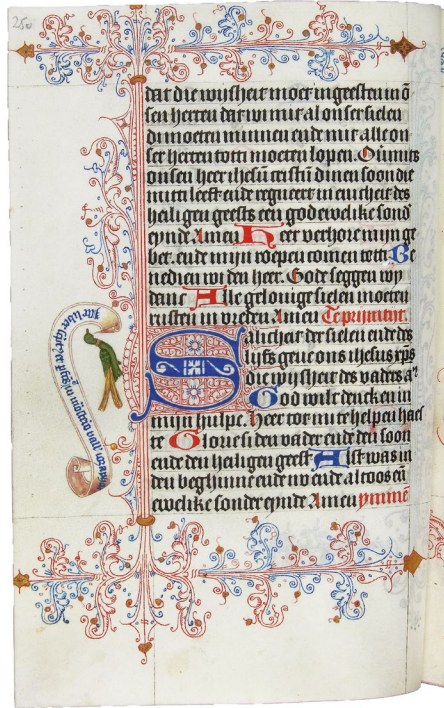 250
dat die wijsheit moet ingeesten in ō
sen herten dat wi mit al onser sielen
di moeten minnen ende mit alle on
ser herten tot ti moeten lopen. Oūmits
onsen heer ihesū cristū dinen soon die
mit leeft ende regneert in enicheit des
heiligen geests een god ewelike sond̓
eynde Amen Heer verhore mijn ge
bet. ende mijn roepen comen tot ti Be
nedien wi den heer. Gode seggen wy
danc Alle gelovige sielen moeten
rusten in vreden Amen Te prijmtijt.
Salicheit der sielen ende des
lijfs geve ons ihesus xp̄s
die wijsheit des vaders a
God wilt dencken in
mijn hulpe. Heer tot mi te helpen haes
te Glorie si den vader ende den soon
ende den heiligen geest Als t was in
den beghinne ende nv ende altoos eñ
ewelike sonder eynde Amen ymme
Iste liber